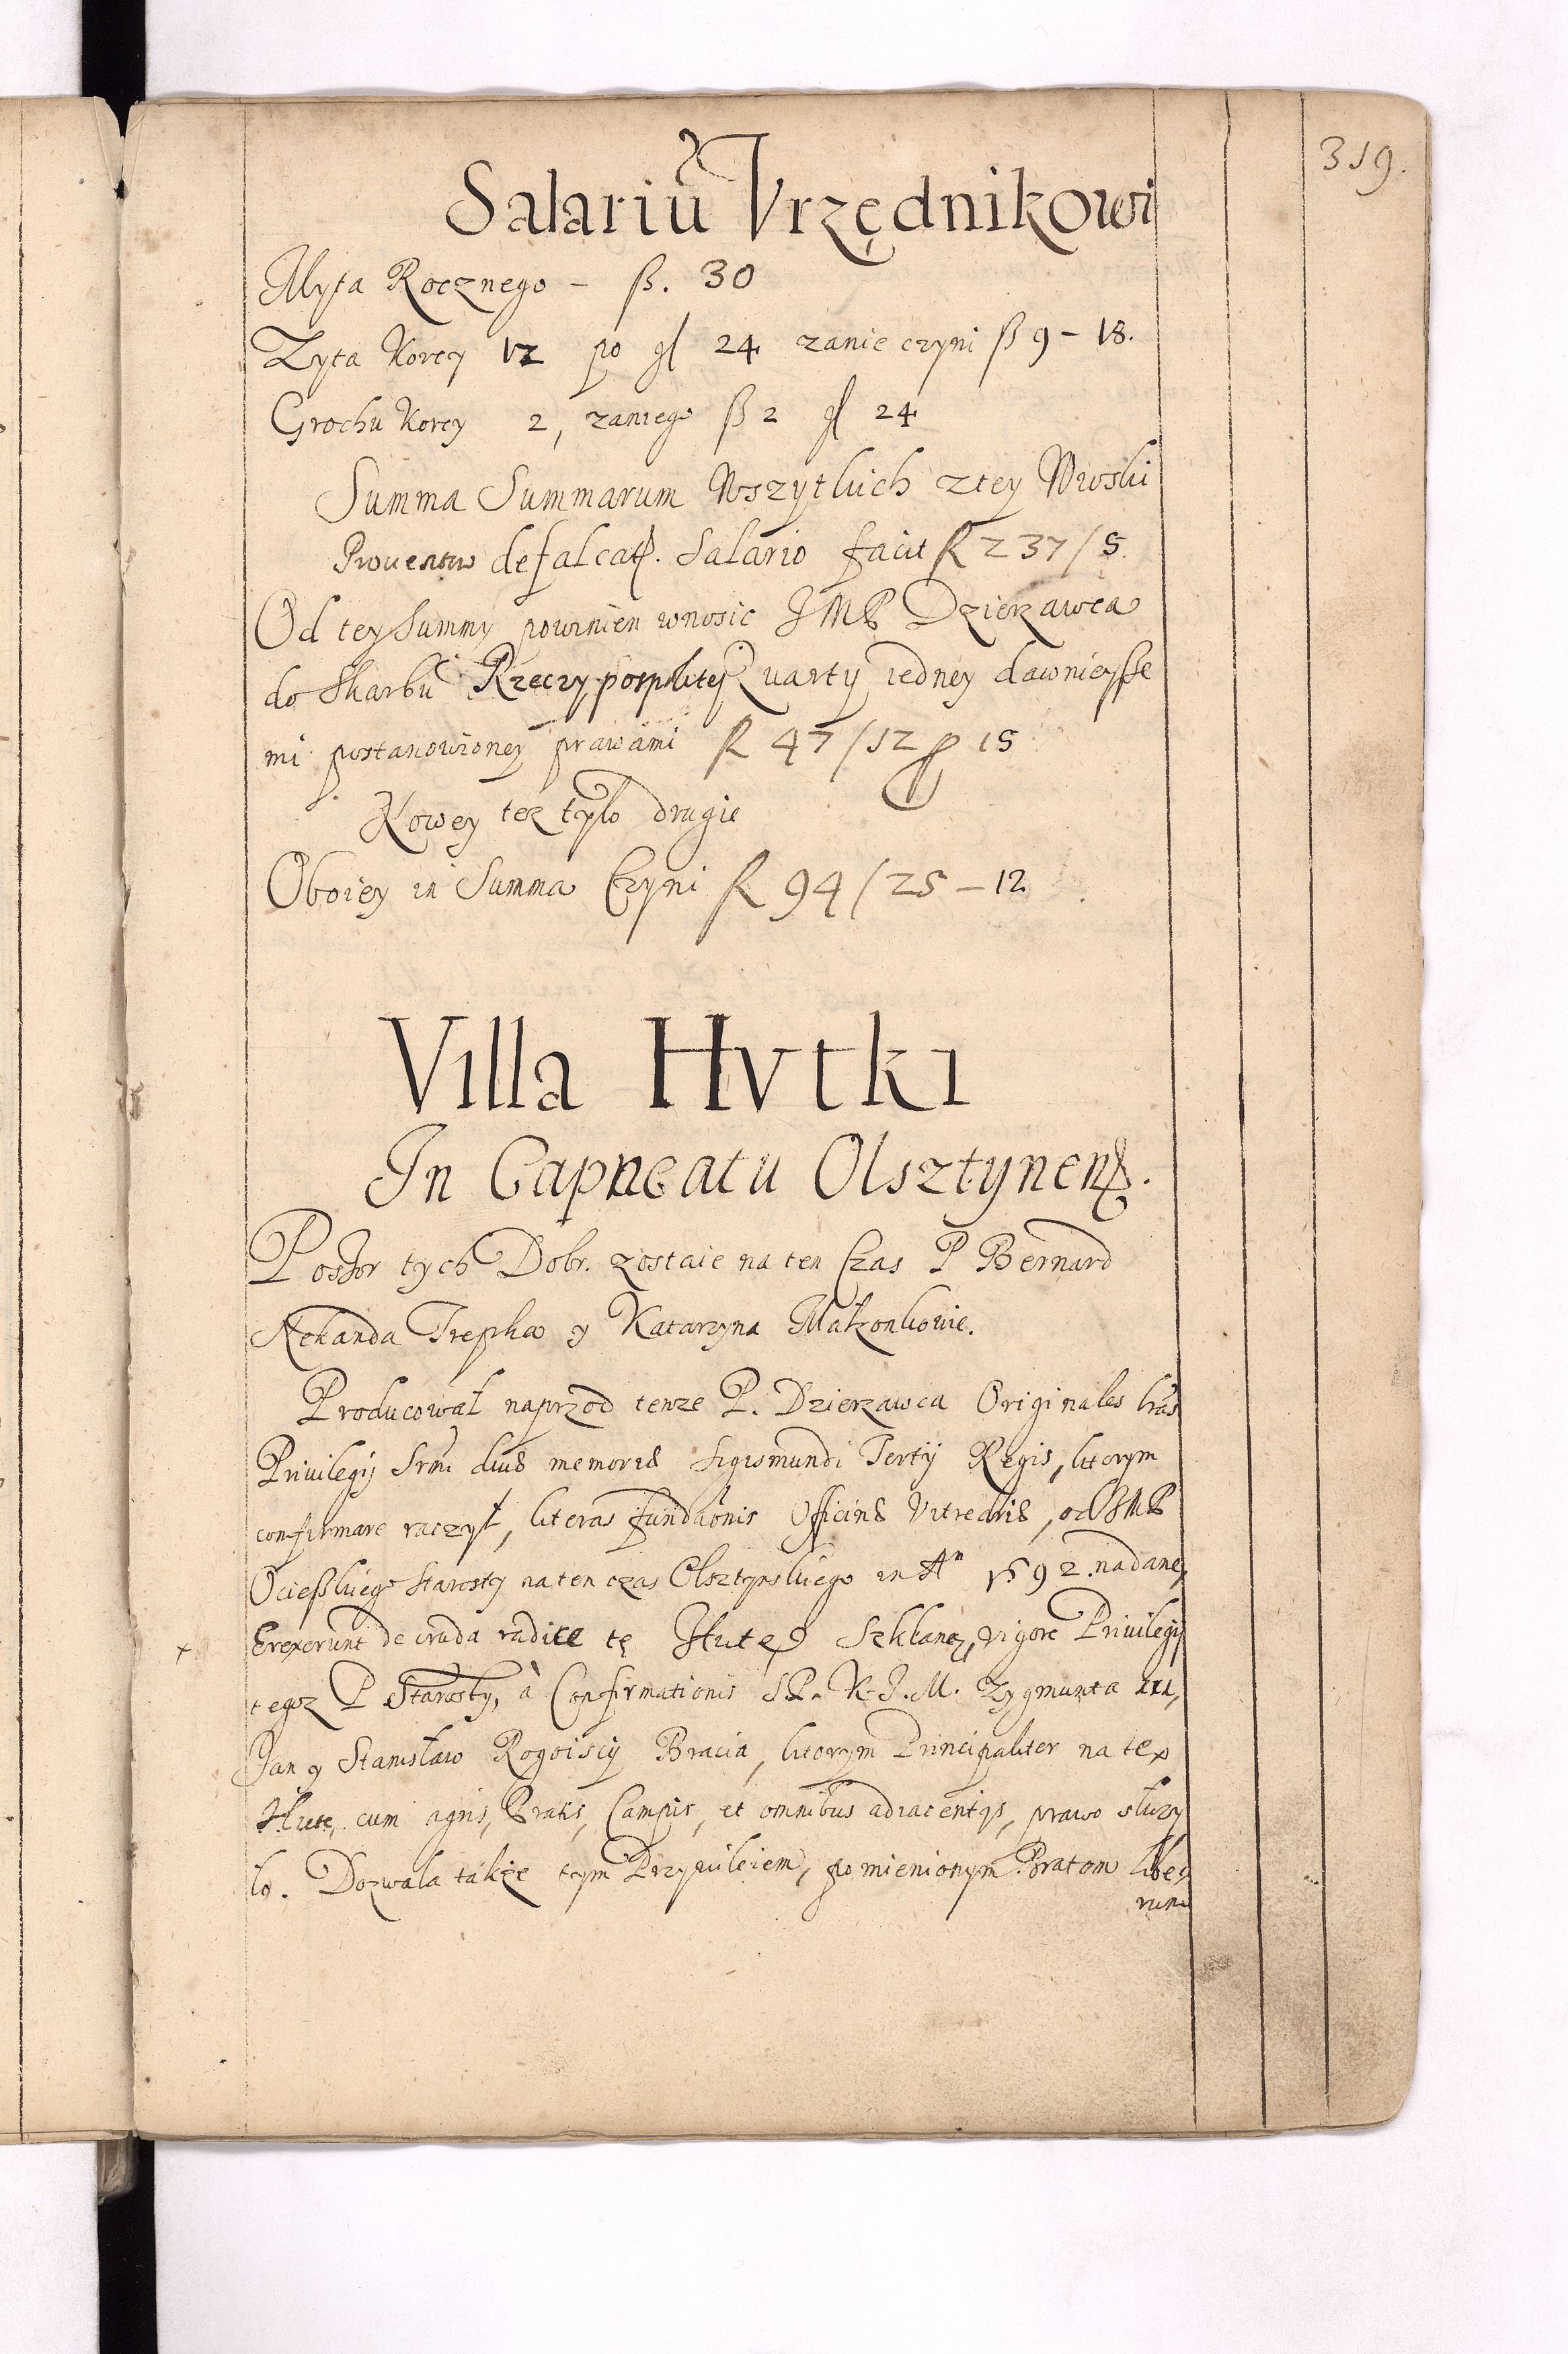 319.
Salariũ Vrzędnikowi
Myta Rocznego – ß. 30
Zyta Korcy 12 po gł 24 zanie czyni ß 9 – 18.
Grochu Korcy 2, zaniego ß 2 gł 24
Summa Summarum Wszytkich ztey Wioski
Prouentow defalcat. Salario facit R 237/5.
Od tey Summy powinien wnosic JMP Dzierzawca
do Skarbu Rzeczyposplitey Quarty iedney dawnieysse
mi postanowioney prawami R 47/12 15
Nowey tez tylo drugie
Oboiey in Summa Czyni R 94/25 – 12
Villa Hvtki
In Capneatu Olsztynens.
Possor tych Dobr. zostaie na ten Czas P Bernard
Nekanda Trepka y Katarzyna Małzonkowie.
Producował naprzod tenze P. Dzierzawca Originales lras
Priuilegij Srmi diuæ memoriæ Sigismundi Tertij Regis, ktorym
confirmare raczył, literas fundaonis Officinæ Vitreariæ, od JMP
Ocießkiego Starosty na ten czas Olsztynskiego in Aº 1592. nadane,
Erexerunt de cruda radice tę Hutę Szklaną, vigore Priuilegij
tegoz P Starosty, à Confirmationis S P. K. J. M. Zygmunta III,
Jan y Stanisław Rogoiscy Bracia, ktorym Principaliter na tę
Hutę, cum agris, Pratis, Campis, et omnibus adiacentys, prawo słuzy
ło. Dozwala także tym Przywileiem, pomienionym Bratom libe,
rum